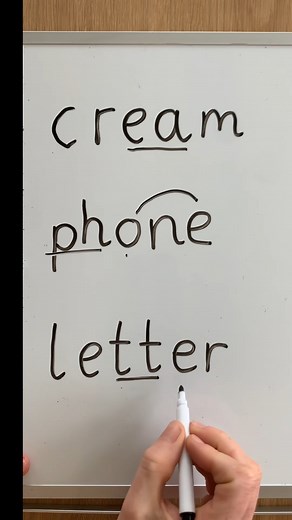 cream
phone
letter